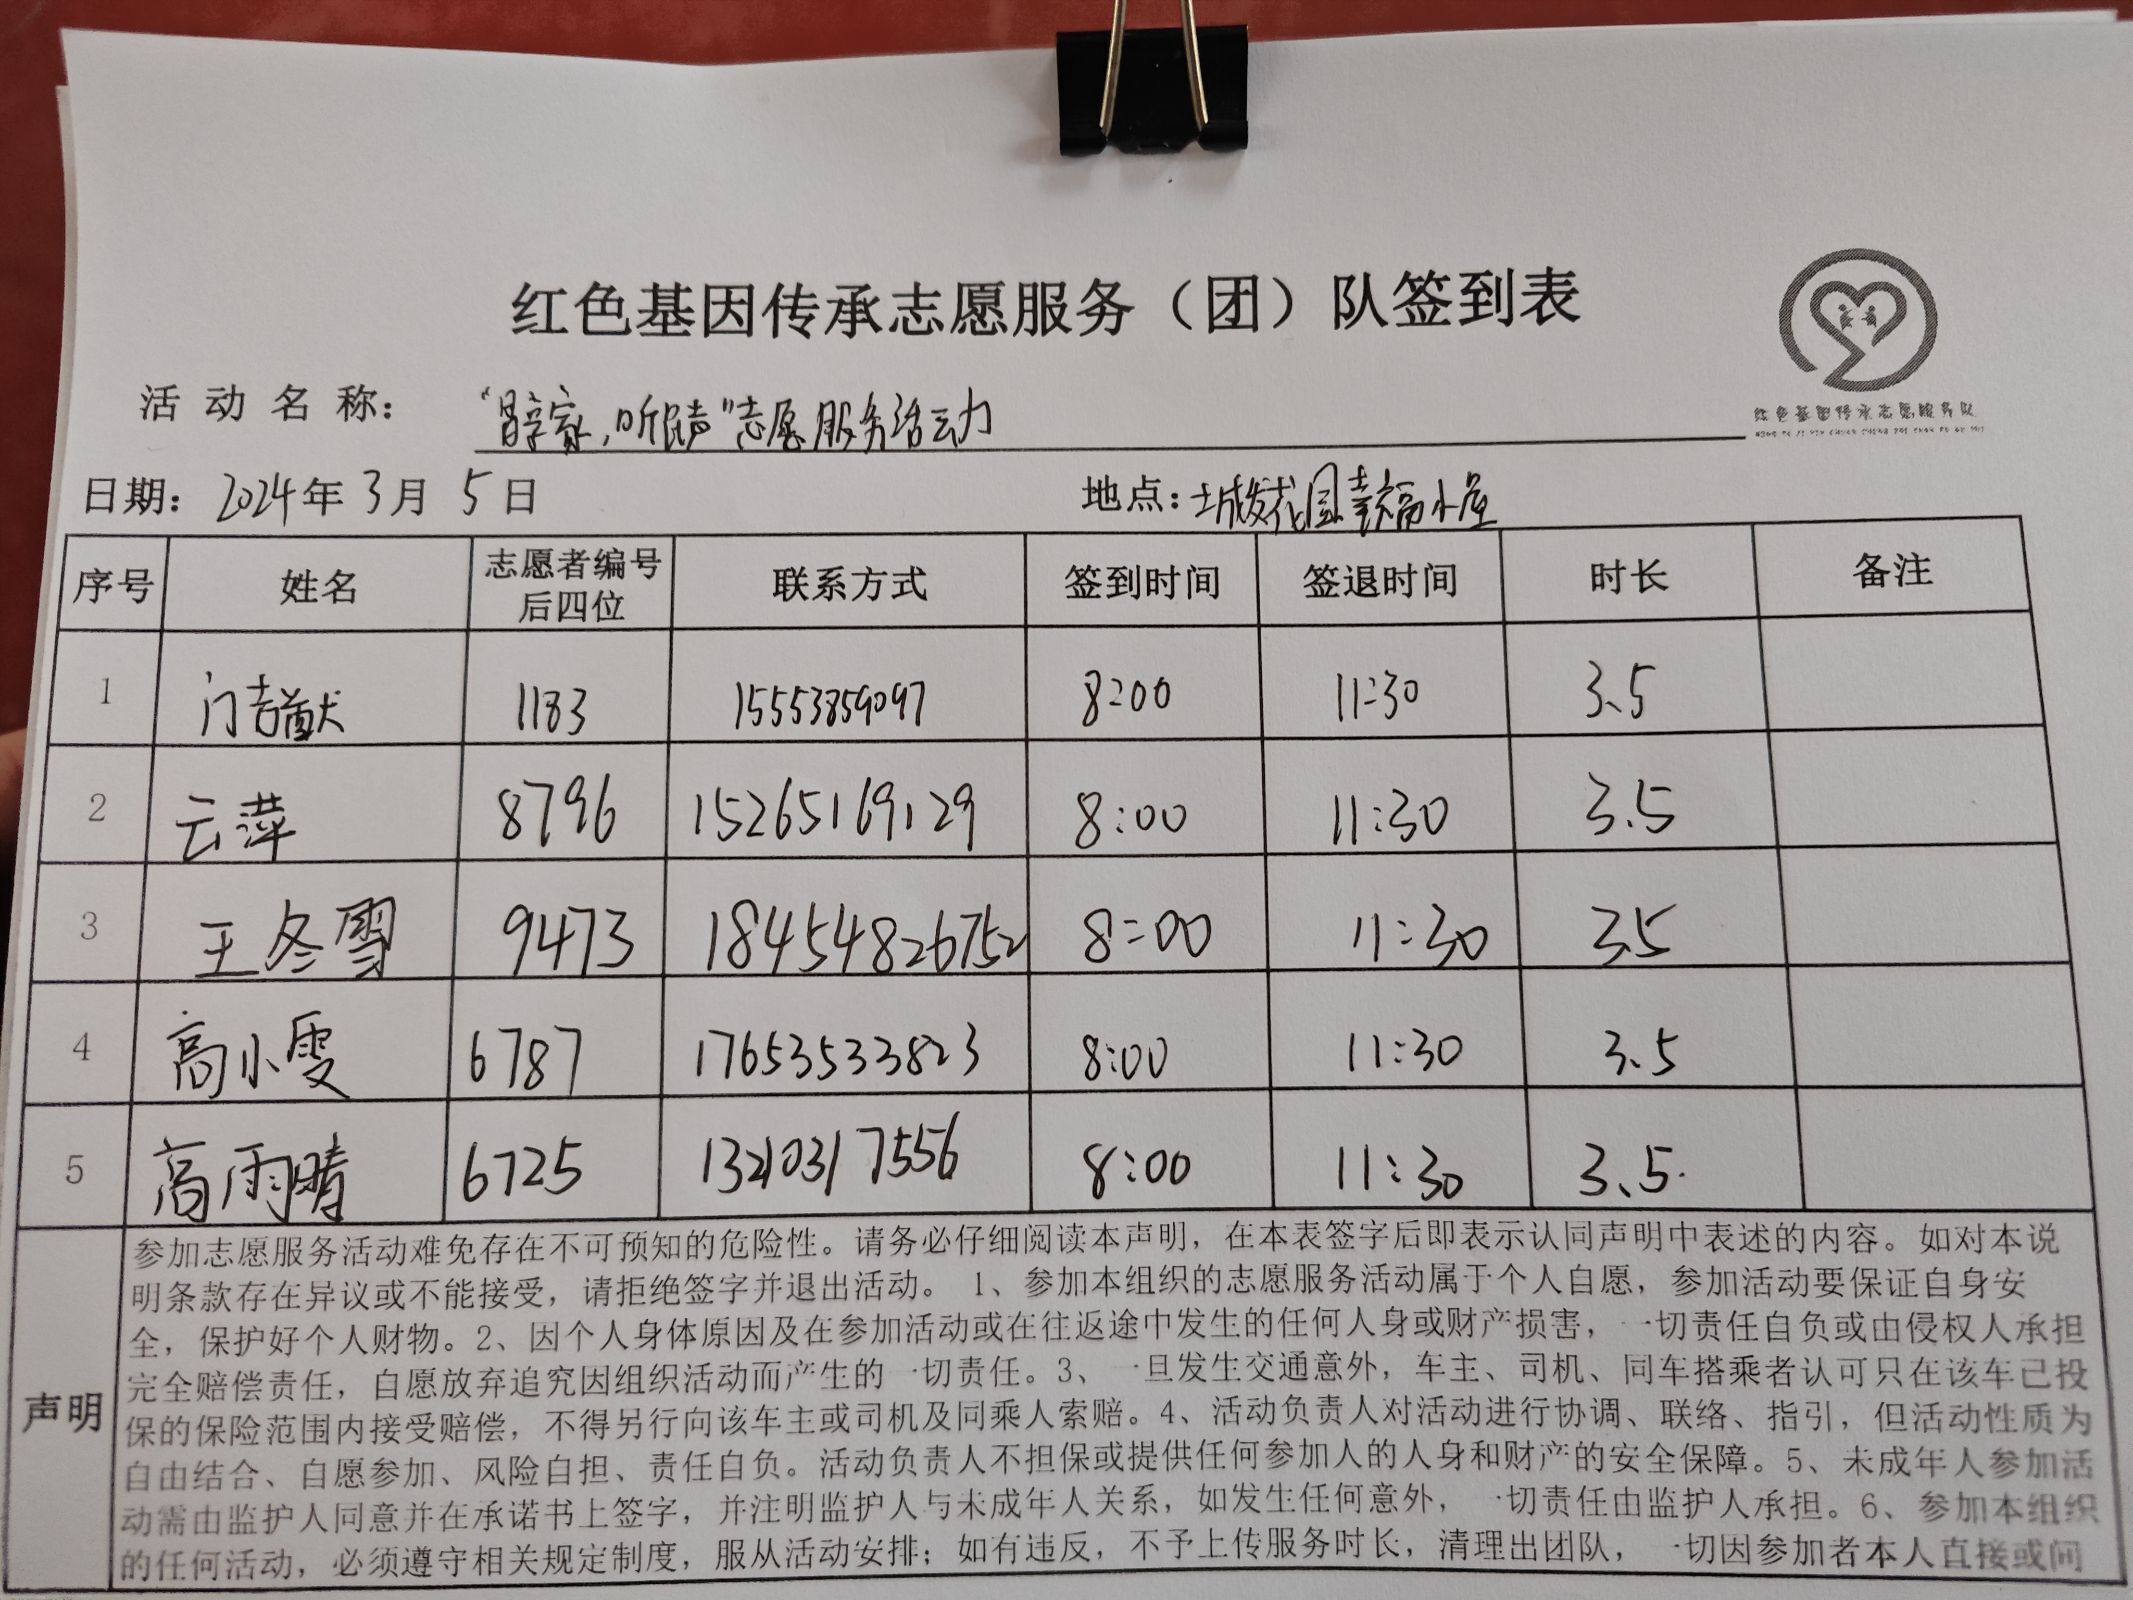 红色基因传承志愿服务（团）队签到表
红色基因传承志愿服务队
活动名称：
听民声"志愿服务活动
日期：2024年3月5日 地点：城发花园幸福小屋
序号 姓名 志愿者编号后四位 联系方式 签到时间 签退时间 时长 备注
1 门吉猷 1183 15553859097 8:00 11:30 3.5
2 云萍 8796 15265169129 8:00 11:30 3.5
3 王冬雪 9473 18454826752 8:00 11:30 3.5
4 高小雯 6787 17653533823 8:00 11:30 3.5
5 高雨晴 6725 13210317556 8:00 11:30 3.5
声明
参加志愿服务活动难免存在不可预知的危险性。请务必仔细阅读本声明，在本表签字后即表示认同声明中表述的内容。如对本说
明条款存在异议或不能接受，请拒绝签字并退出活动。 1、参加本组织的志愿服务活动属于个人自愿，参加活动要保证自身安
全，保护好个人财物。2、因个人身体原因及在参加活动或在往返途中发生的任何人身或财产损害，一切责任自负或由侵权人承担
完全赔偿责任，自愿放弃追究因组织活动而产生的一切责任。3、一旦发生交通意外，车主、司机、同车搭乘者认可只在该车已投
保的保险范围内接受赔偿，不得另行向该车主或司机及同乘人索赔。4、活动负责人对活动进行协调、联络、指引，但活动性质为
自由结合、自愿参加、风险自担、责任自负。活动负责人不担保或提供任何参加人的人身和财产的安全保障。5、未成年人参加活
动需由监护人同意并在承诺书上签字，并注明监护人与未成年人关系，如发生任何意外，一切责任由监护人承担。6、参加本组织
的任何活动，必须遵守相关规定制度，服从活动安排；如有违反，不予上传服务时长，清理出团队，一切因参加者本人直接或间